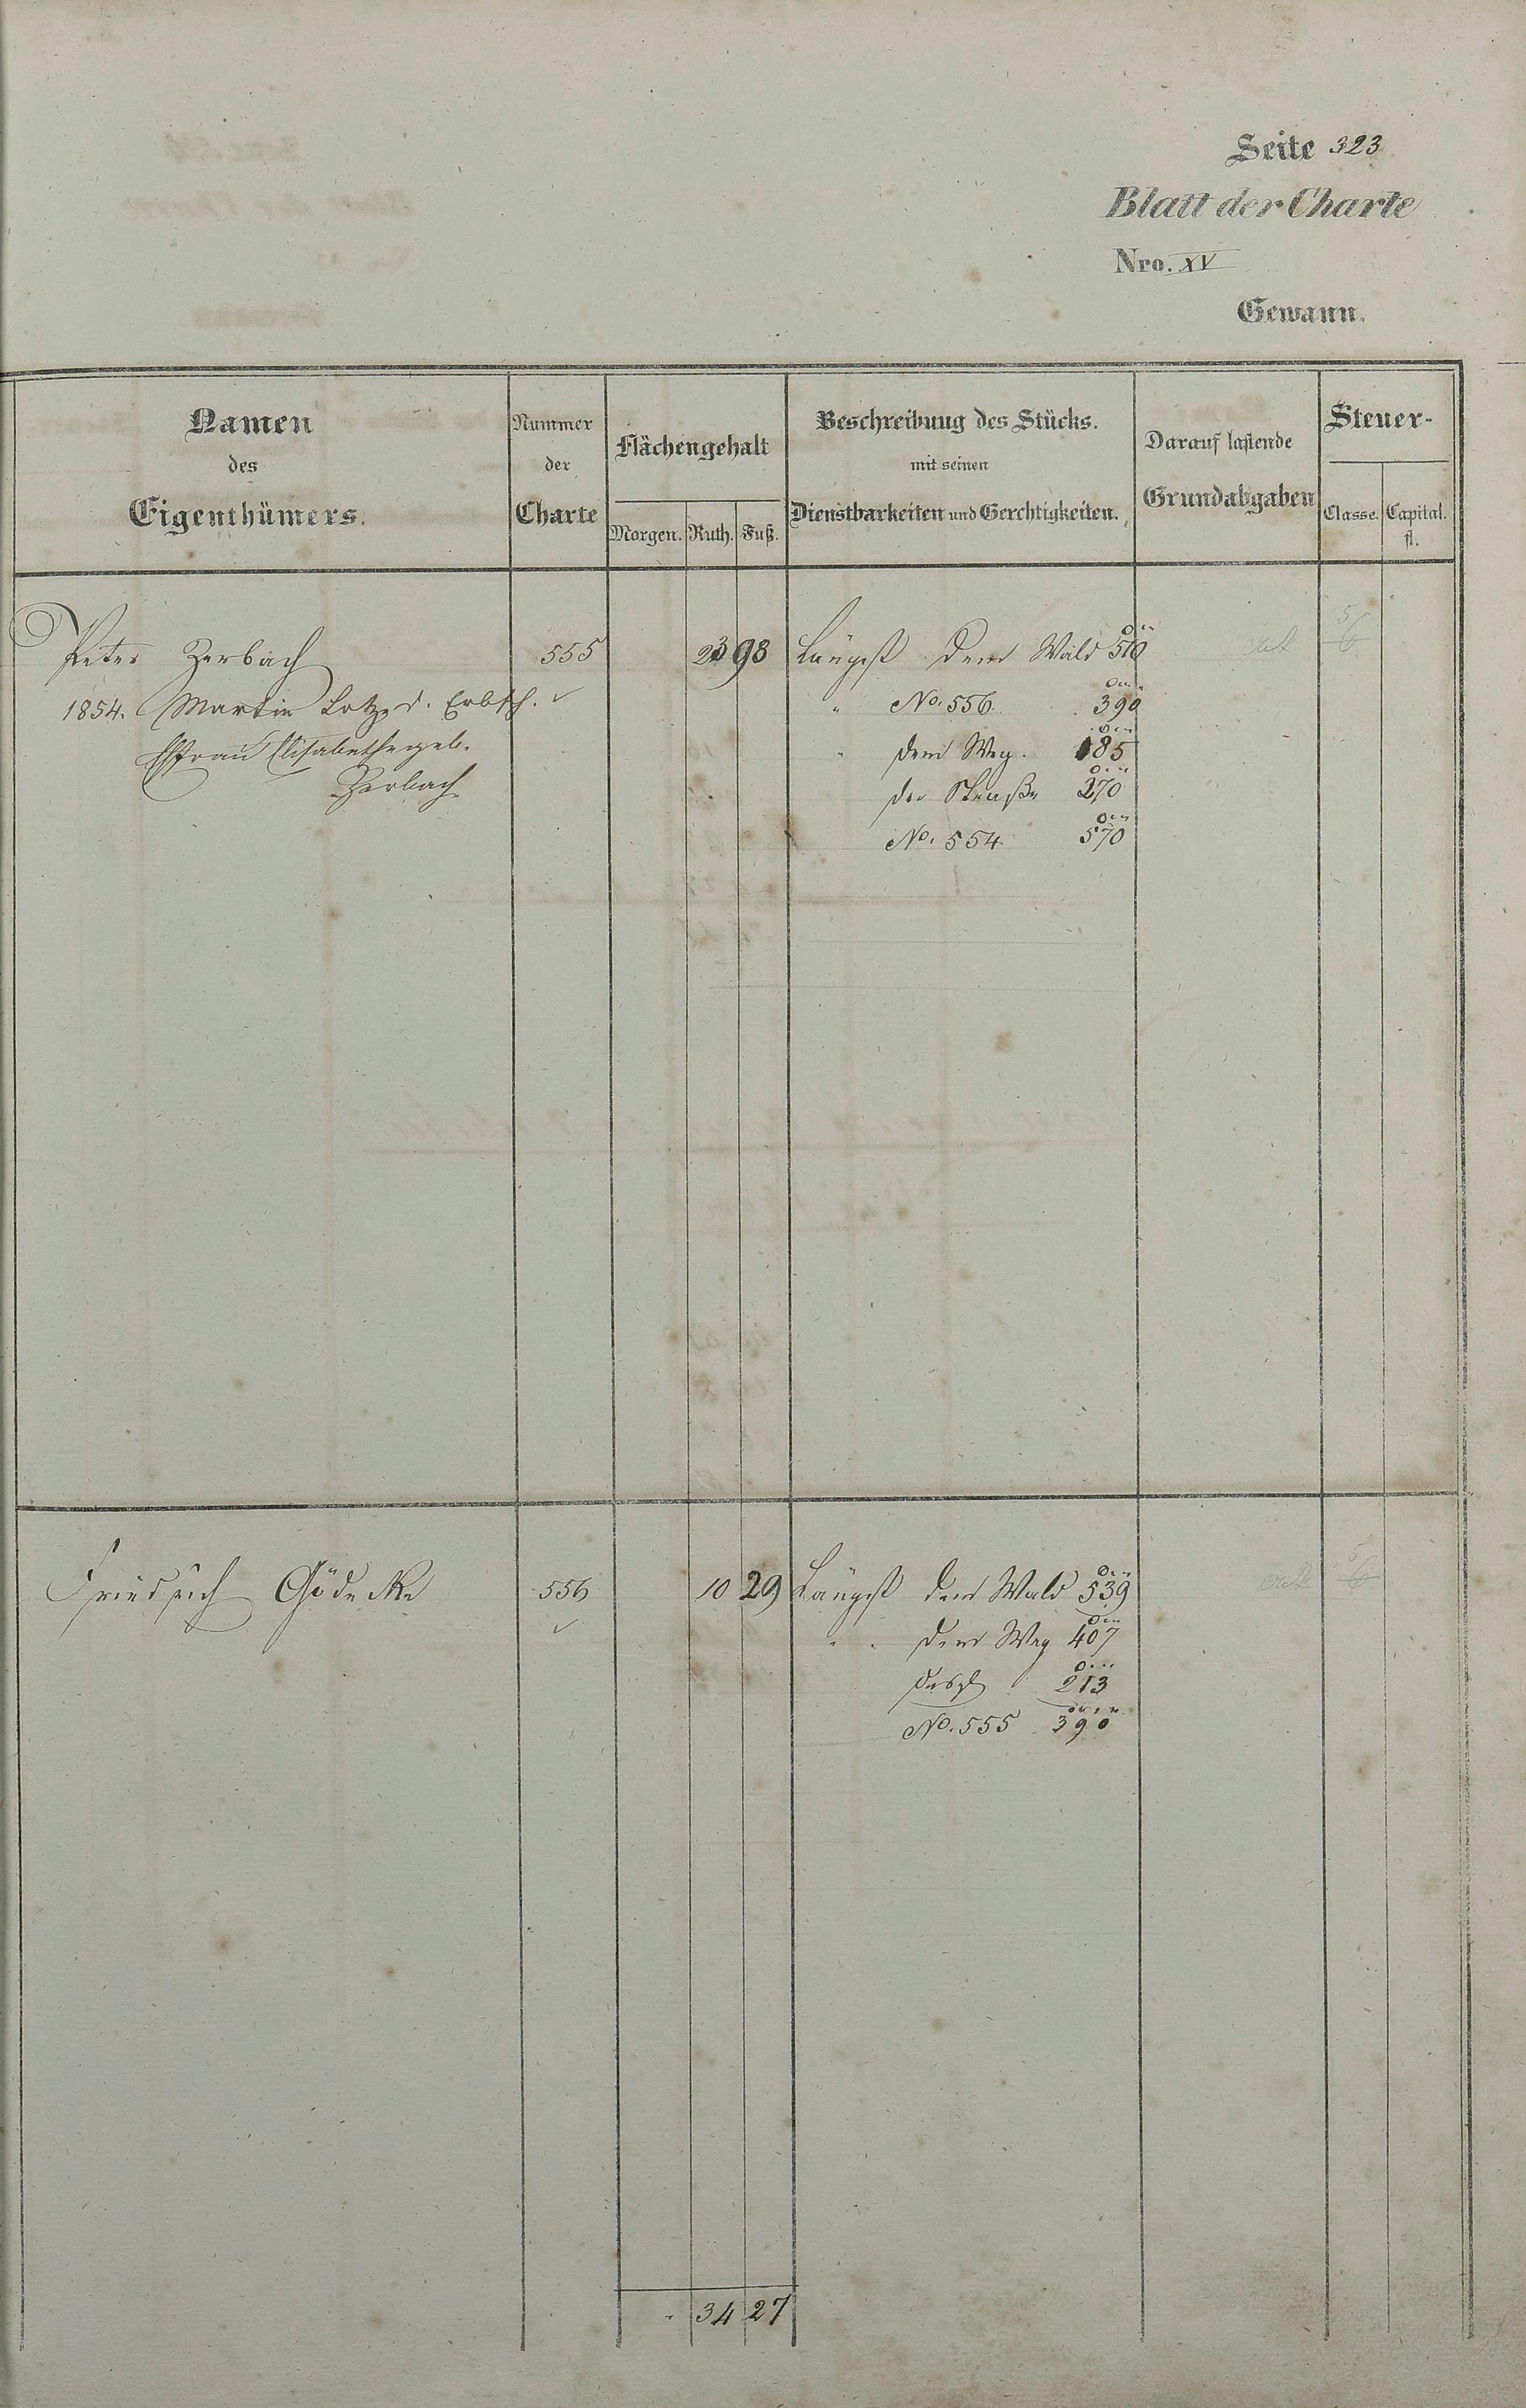 Seite 323
Blatt der Charte
Nro. XV
Gewann.
Namen des Eigenthümers.
Nummer der Charte
Flächengehalt
Morgen. Ruth. Fuß.
Beschreibung des Stücks. mit seinen Dienstbarkeiten und Gerechtigkeiten.
Darauf lastende Grundabgaben
Steuer-
Classe. Capital. fl.
Peter Zerbach 555 23 98 Längst dem Wald 510
1854. Martin Lotz, d. Erbsch. " No. 556. 390
Ehfrau Elisabethe geb. " dem Weg. 185
Zerbach der Straße 270
No. 554 570
5
6
Friedrich Gödecke 556 10 29 Längst dem Wald 539
" dem Weg 407
desgl 213
No. 555 390
5
6
34 27